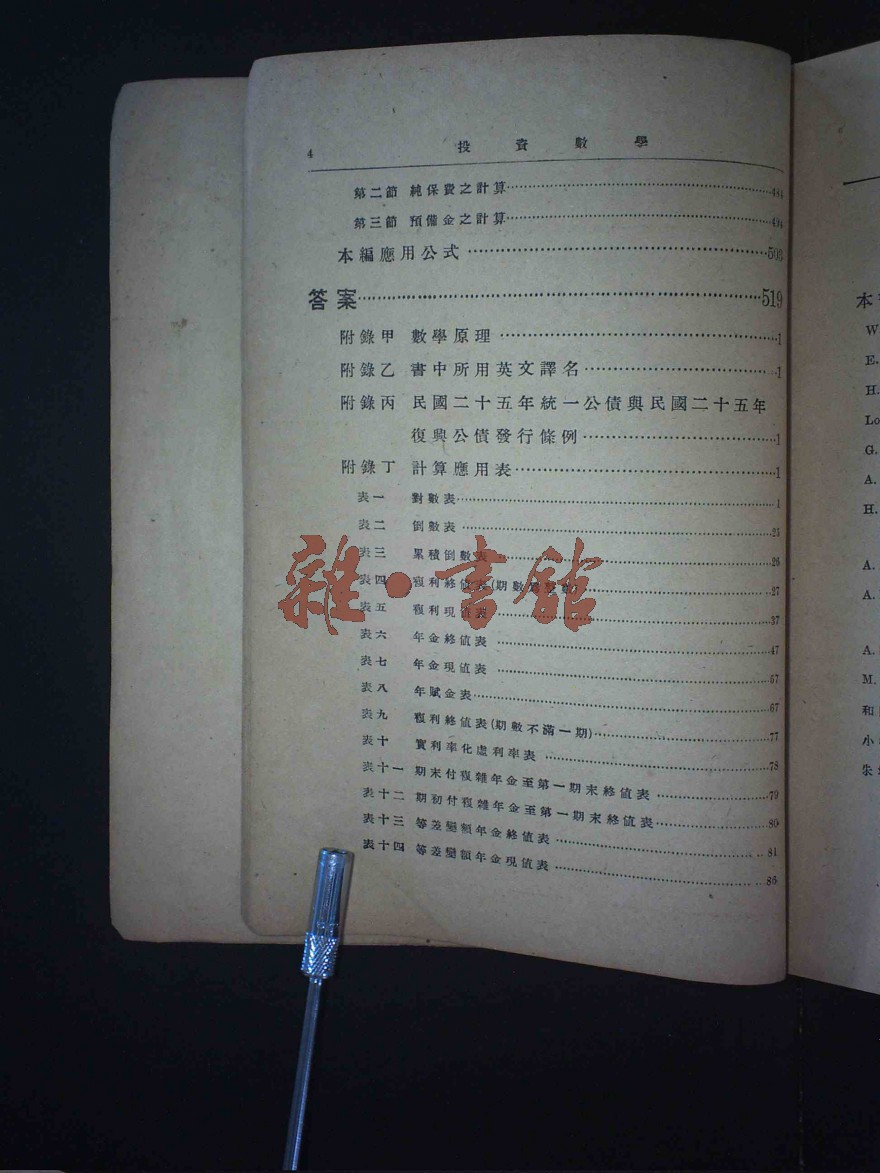 4 投資數學
第二節 純保費之計算……484
第三節 預備金之計算……494
本編應用公式……503
答案……519
附錄甲 數學原理……1
附錄乙 書中所用英文譯名……1
附錄丙 民國二十五年統一公債與民國二十五年
復興公債發行條例……1
附錄丁 計算應用表……1
表一 對數表……1
表二 倒數表……25
表三 累積倒數表……26
表四 複利終值表(期數為整數)……27
表五 複利現值表……37
表六 年金終值表……47
表七 年金現值表……57
表八 年賦金表……67
表九 複利終值表(期數不滿一期)……77
表十 實利率化虛利率表……78
表十一 期末付複雜年金至第一期末終值表……79
表十二 期初付複雜年金至第一期末終值表……80
表十三 等差變額年金終值表……81
表十四 等差變額年金現值表……86
雜·書館
本
W
E.
H.
Lo
G.
A.
H.
A.
A.
A.
M.
和
小
朱